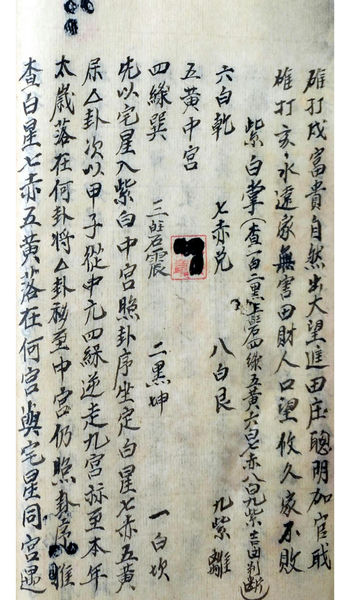 碓打戌富貴自然出大望進田庄聰明加官職
碓打亥永遠家無害田財人口望攸久家不敗
紫白掌(查一白二黑三碧四綠五黃六白七赤八白九紫吉凶判断)
六白乾 七赤兌 八白艮 九紫離
五黃中宮
四綠巽 三碧震 二黑坤 一白坎
先以宅星入紫白中宮照卦序坐定白星七赤五黃
屎厶卦次以甲子從中元四綠逆走九宮标至本年
太歲落在何卦將厶卦移至中宮仍照卦序推
查白星七赤五黃落在何宮與宅星同宮遇